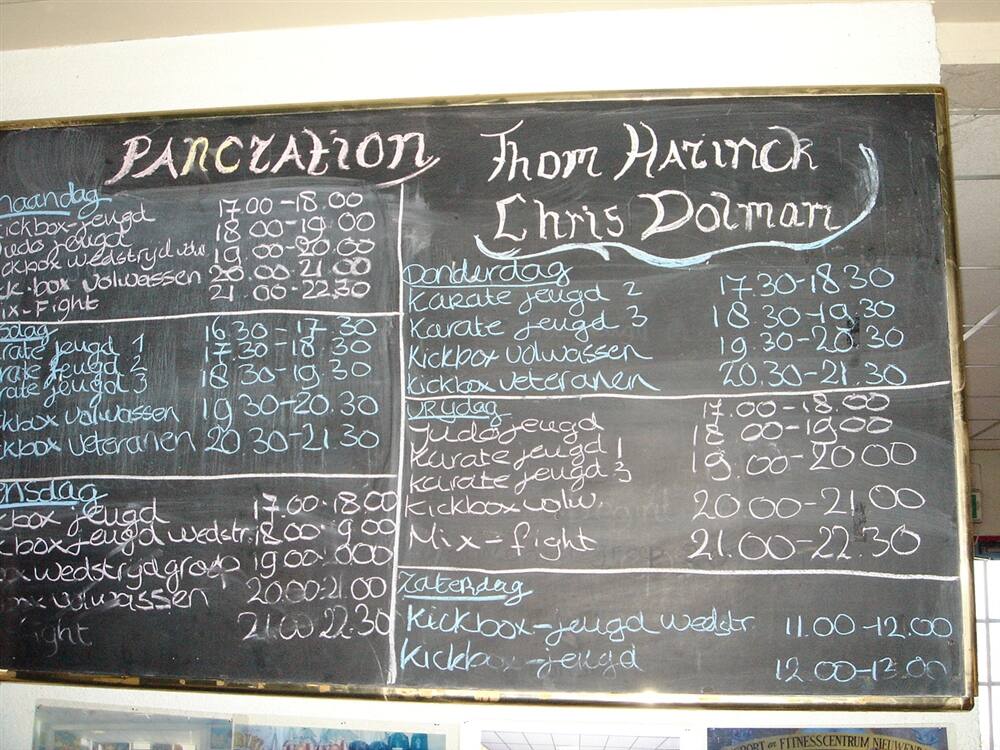 PANCRATION
Thom HARINCK
Chris Dolman
maandag
kickbox-jeugd 17.00-18.00
Judo jeugd 18.00-19.00
ickbox wedstryd volw 19.00-20.00
ck-box volwassen 20.00-21.00
ix-Fight 21.00-22.30
sdag
rate jeugd 1 16.30-17.30
rate jeugd 2 17.30-18.30
rate jeugd 3 18.30-19.30
ckbox volwassen 19.30-20.30
ckbox veteranen 20.30-21.30
ensdag
kbox jeugd 17.00-18.00
cbox jeugd wedstr. 18.00 9.00
ox wedstrydgroep 19.00 0.00
ox volwassen 20.00-21.00
ight 21.00 22.30
Donderdag
Karate jeugd 2 17.30-18.30
Karate jeugd 3 18.30-19.30
Kickbox volwassen 19.30-20.30
kickbox veteranen 20.30-21.30
vrydag
Judo jeugd 17.00-18.00
Karate jeugd 1 18.00-19.00
karate jeugd 3 19.00-20.00
Kickbox volw. 20.00-21.00
Mix-fight 21.00-22.30
zaterdag
Kickbox-jeugd wedstr. 11.00-12.00
Kickbox-jeugd 12.00-13.00
PORT en FITNESSCENTRUM NIEUWEN